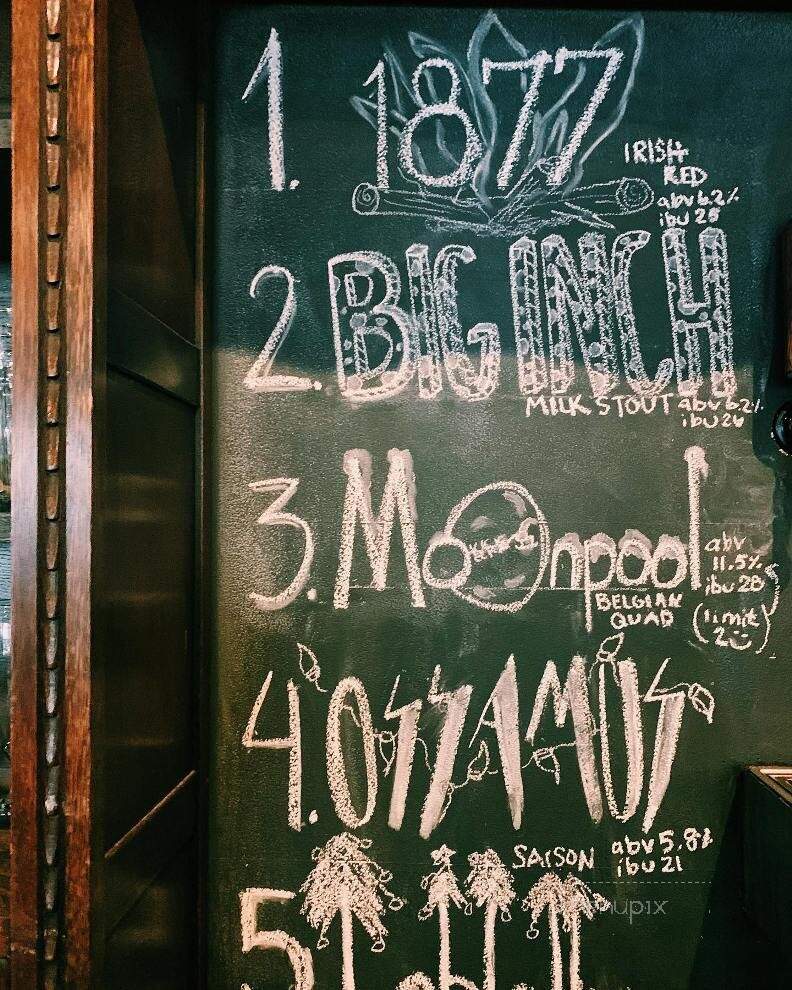 1. 1877
IRISH
RED
abv 6.2%
ibu 25
2. BIG INCH
MILK STOUT abv 6.2%
ibu 26
3. Moonpool
abv
11.5%
ibu 28
BELGIAN
QUAD
(limit
2)
4. OSSAMUS
SAISON abv 5.8%
ibu 21
5.